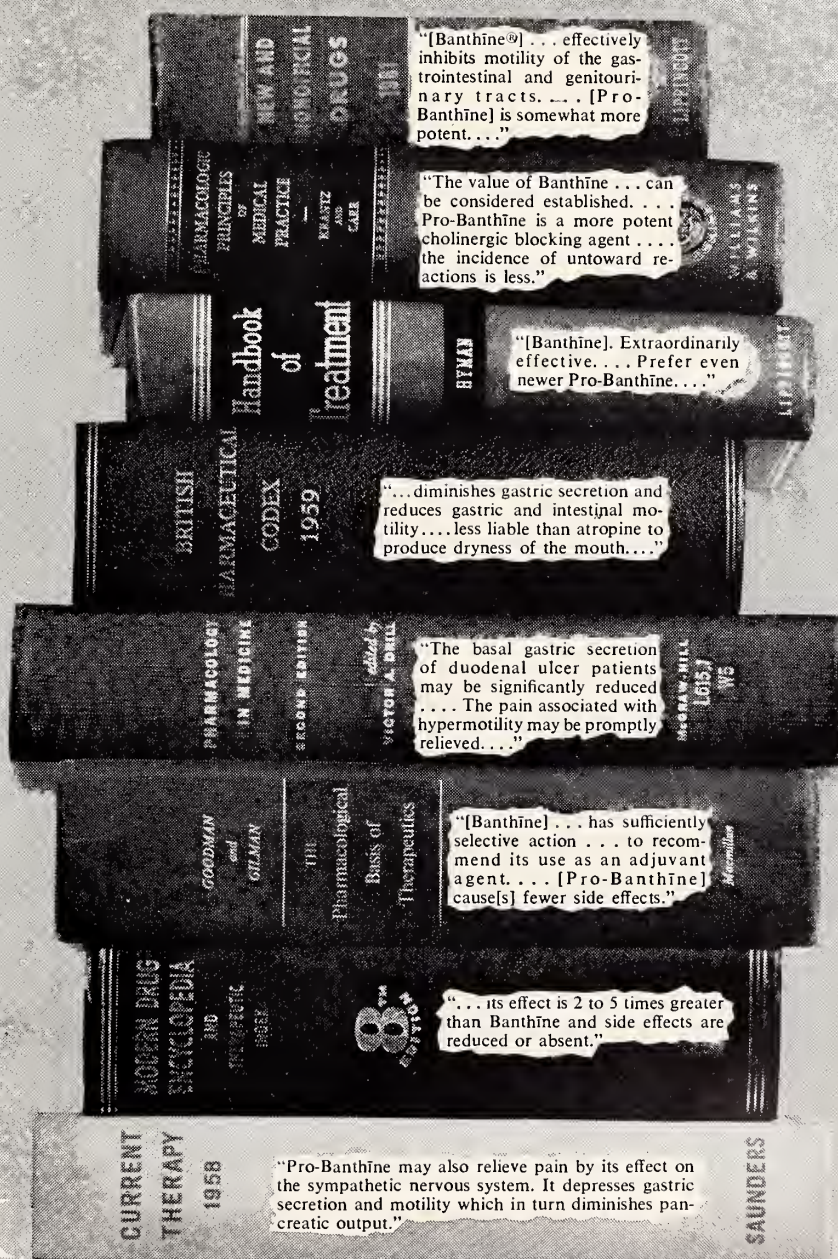 NEW AND
NONOFFICIAL
DRUGS
1961
“[Banthīne®] . . . effectively
inhibits motility of the gas-
trointestinal and genitouri-
nary tracts. . . . [Pro-
Banthīne] is somewhat more
potent. . . .”
LIPPINCOTT
PHARMACOLOGIC
PRINCIPLES
OF
MEDICAL
PRACTICE
KRANTZ
AND
CARR
“The value of Banthīne . . . can
be considered established. . . .
Pro-Banthīne is a more potent
cholinergic blocking agent . . . .
the incidence of untoward re-
actions is less.”
WILLIAMS
& WILKINS
Handbook
of
Treatment
HYMAN
“[Banthīne]. Extraordinarily
effective. . . . Prefer even
newer Pro-Banthīne. . . .”
LIPPINCOTT
BRITISH
PHARMACEUTICAL
CODEX
1959
“. . . diminishes gastric secretion and
reduces gastric and intestinal mo-
tility. . . . less liable than atropine to
produce dryness of the mouth. . . .”
PHARMACOLOGY
IN MEDICINE
SECOND EDITION
edited by
VICTOR A. DRILL
“The basal gastric secretion
of duodenal ulcer patients
may be significantly reduced
. . . . The pain associated with
hypermotility may be promptly
relieved. . . .”
McGRAW-HILL
L615.7
W5
GOODMAN
and
GILMAN
THE
Pharmacological
Basis of
Therapeutics
“[Banthīne] . . . has sufficiently
selective action . . . to recom-
mend its use as an adjuvant
agent. . . . [Pro-Banthīne]
cause[s] fewer side effects.”
Macmillan
MODERN DRUG
ENCYCLOPEDIA
AND
THERAPEUTIC
INDEX
8TH
EDITION
“. . . its effect is 2 to 5 times greater
than Banthīne and side effects are
reduced or absent.”
CURRENT
THERAPY
1958
“Pro-Banthīne may also relieve pain by its effect on
the sympathetic nervous system. It depresses gastric
secretion and motility which in turn diminishes pan-
creatic output.”
SAUNDERS